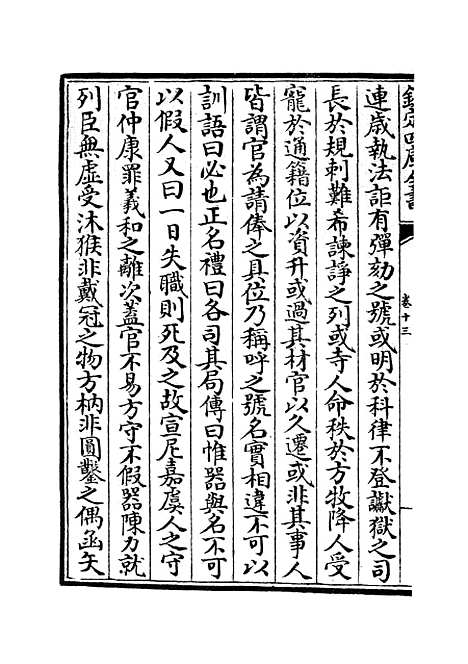 欽定四庫全書
卷十三
連歲執法詎有彈劾之號或明於科律不登讞獄之司
長於規刺難希諫諍之列或寺人命秩於方牧降人受
寵於通籍位以資升或過其材官以久遷或非其事人
皆謂官為請俸之具位乃稱呼之號名實相違不可以
訓語曰必也正名禮曰各司其局傳曰惟器與名不可
以假人又曰一日失職則死及之故宣尼嘉虞人之守
官仲康罪羲和之離次蓋官不易方守不假器陳力就
列臣無虛受沐猴非戴冠之物方枘非圓鑿之偶函矢